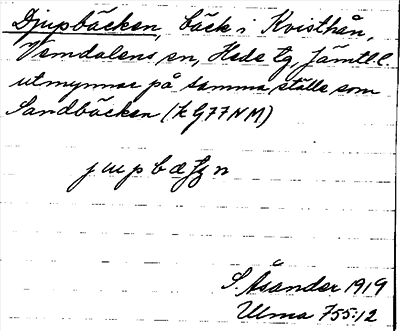 Djupbäcken, bäck i Kvisthån,
Vemdalens sn, Hede tg, Jämtl. l.
utmynnar på samma ställe som
Sandbäcken (k G77NM)
S. Åsander 1919
Ulma 755:12